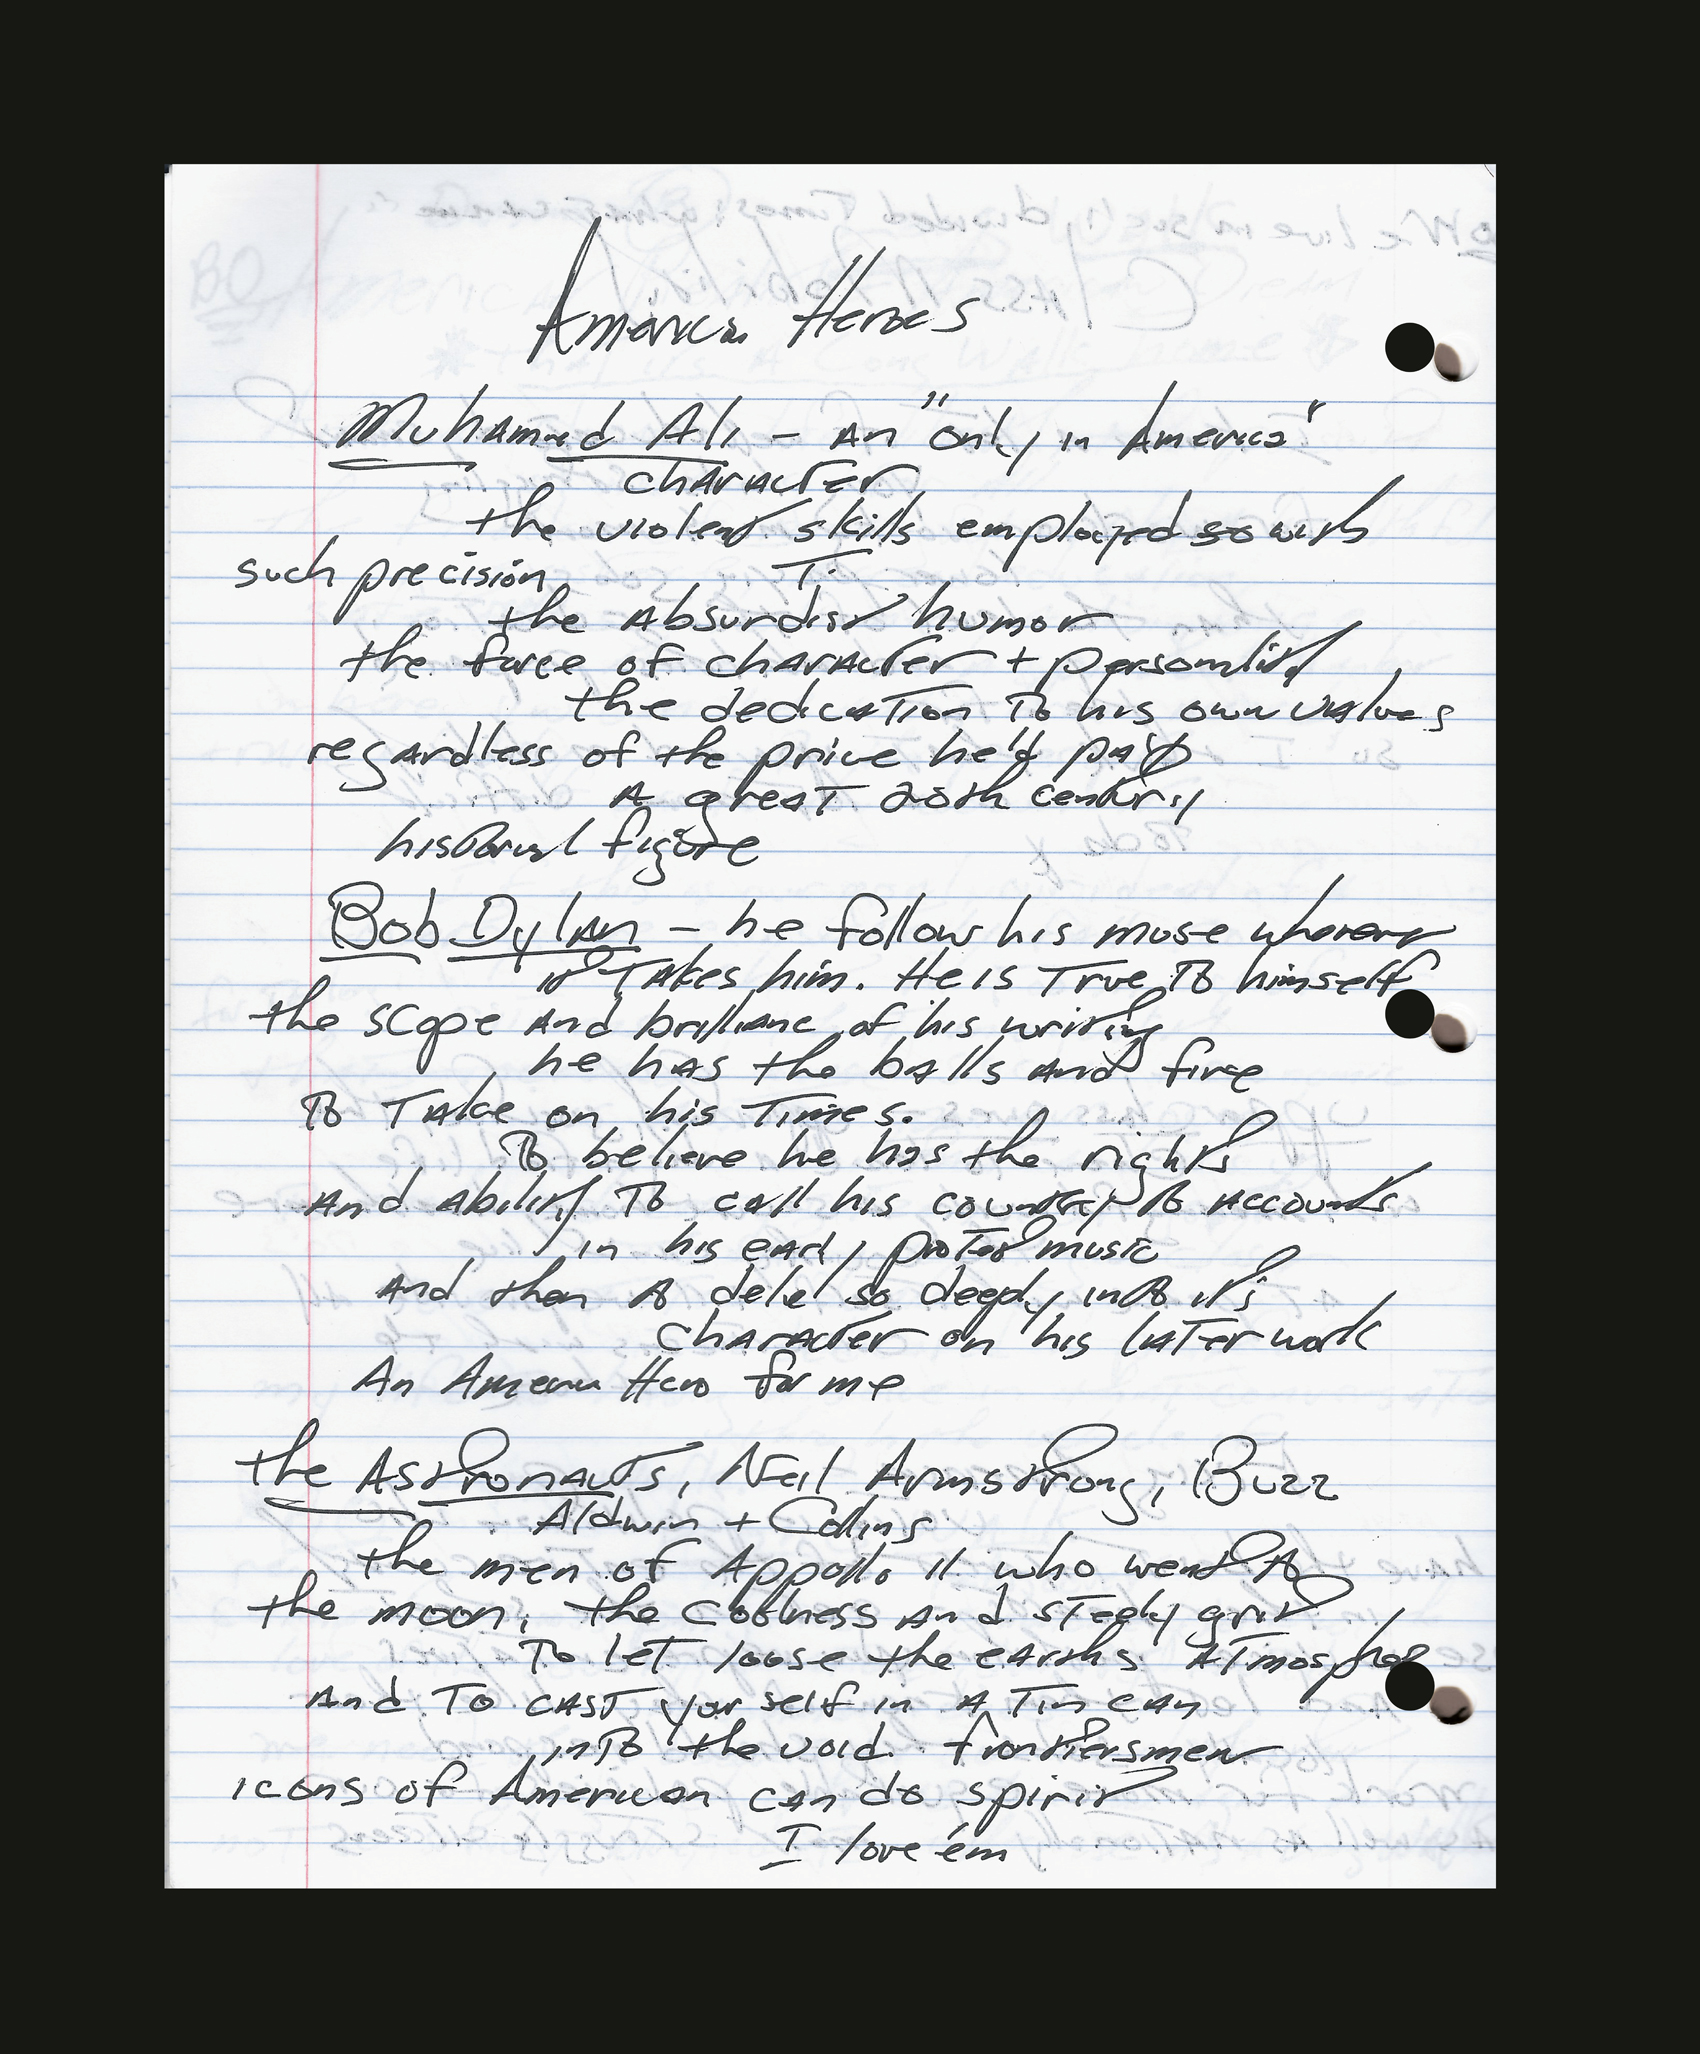 American Heroes
Muhamed Ali - An "only in America"
character
the violent skills employed so with
such precision T.
the Absurdist humor
the force of character + personality
the dedication To his own values
regardless of the price he'd pay
A great 20th century
historical figure
Bob Dylan - he follow his muse wherever
it Takes him. He is True To himself
the scope And brilliance of his writing
he has the balls and fire
To Take on his Times.
To believe he has the rights
And ability To call his country To Accounts
in his early protest music
And then To delve so deeply into it's
character on his later work
An American Hero for me
the Astronauts, Neil Armstrong, Buzz
Aldwin + Collins
the men of Appollo 11 who went To
the moon, the coolness And steely grit
To let loose the earths ATmosphere
And To cast your self in A Tin can
into the void. frontiersmen
icons of American can do spirit
I love 'em